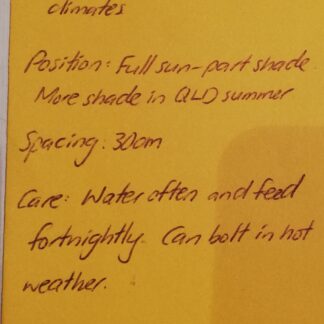 climates
Position: Full sun-part shade.
More shade in QLD summer
Spacing: 30cm
Care: Water often and feed
fortnightly. Can bolt in hot
weather.